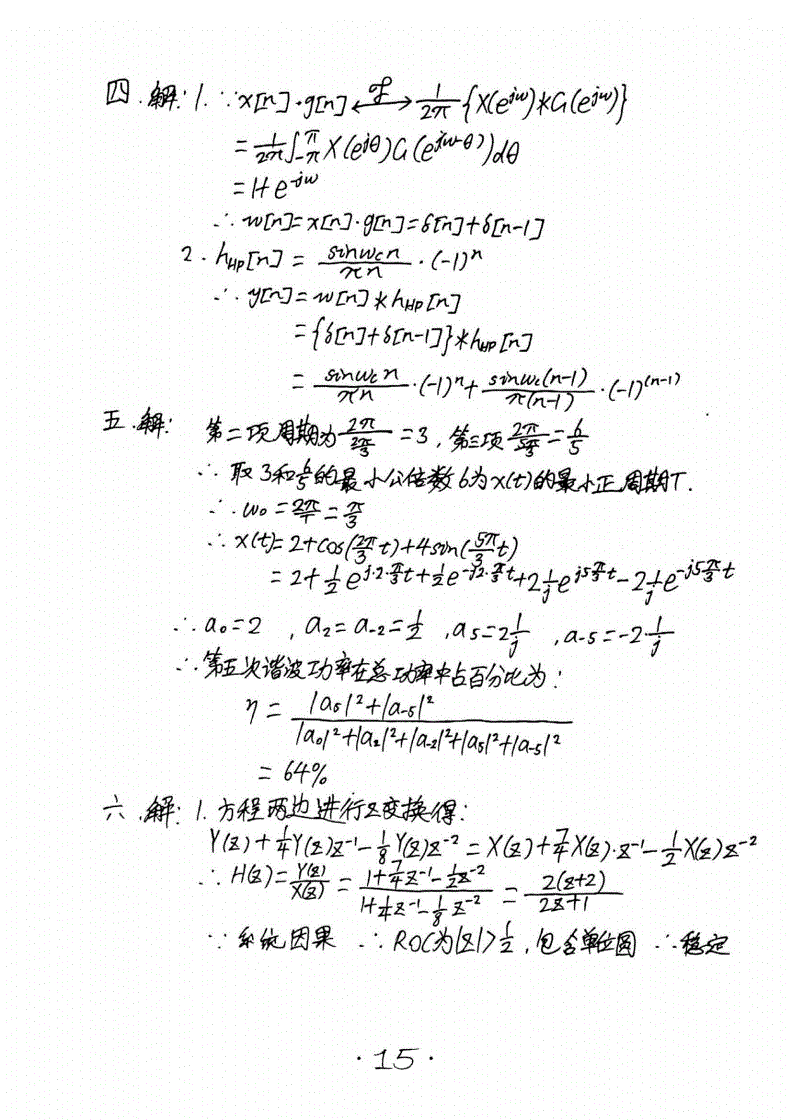 四.解: 1. ∵ x[n]·g[n] ←ℱ→ 1/2π {X(e^{jω})*G(e^{jω})}
= 1/2π ∫_{-π}^{π} X(e^{jθ})G(e^{j(ω-θ)})dθ
= 1+e^{-jω}
∴ w[n]=x[n]·g[n]=δ[n]+δ[n-1]
2. h_{HP}[n] = sinω_c n/πn · (-1)^n
∴ y[n]=w[n]*h_{HP}[n]
={δ[n]+δ[n-1]}*h_{HP}[n]
= sinω_c n/πn · (-1)^n + sinω_c(n-1)/π(n-1) · (-1)^{(n-1)}
五.解: 第二项周期为 2π/(2π/3) =3, 第三项 2π/(5π/3) = 6/5
∴ 取3和6/5的最小公倍数6为x(t)的最小正周期T.
∴ ω₀ = 2π/T = π/3
∴ x(t)=2+cos(2π/3 t)+4sin(5π/3 t)
=2+1/2 e^{j·2·π/3 t}+1/2 e^{-j2·π/3 t}+2 1/j e^{j5π/3 t}-2 1/j e^{-j5π/3 t}
∴ a₀=2 , a₂=a₋₂=1/2 , a₅=2 1/j , a₋₅=-2·1/j
∴ 第五次谐波功率在总功率中占百分比为:
η = |a₅|²+|a₋₅|² / |a₀|²+|a₂|²+|a₋₂|²+|a₅|²+|a₋₅|²
= 64%
六.解: 1. 方程两边进行z变换得:
Y(z)+1/4 Y(z)z^{-1}-1/8 Y(z)z^{-2} = X(z)+7/4 X(z)·z^{-1}-1/2 X(z)z^{-2}
∴ H(z)= Y(z)/X(z) = 1+7/4 z^{-1}-1/2 z^{-2} / 1+1/4 z^{-1}-1/8 z^{-2} = 2(z+2)/2z+1
∵ 系统因果 ∴ ROC为|z|>1/2, 包含单位圆 ∴ 稳定
·15·